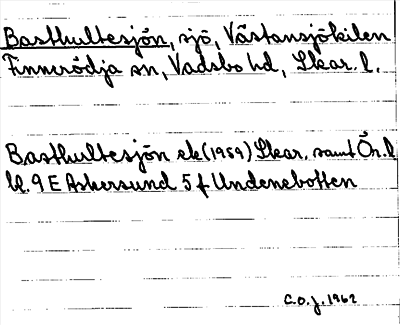 Basthultesjön, sjö, Västansjökilen
Finnerödja sn, Vadsbo hd, Skar. l.
Basthultesjön ek (1959) Skar. samt Ör. l
bl. 9 E Askersund 5 f Undenebotten
C.O.J. 1962